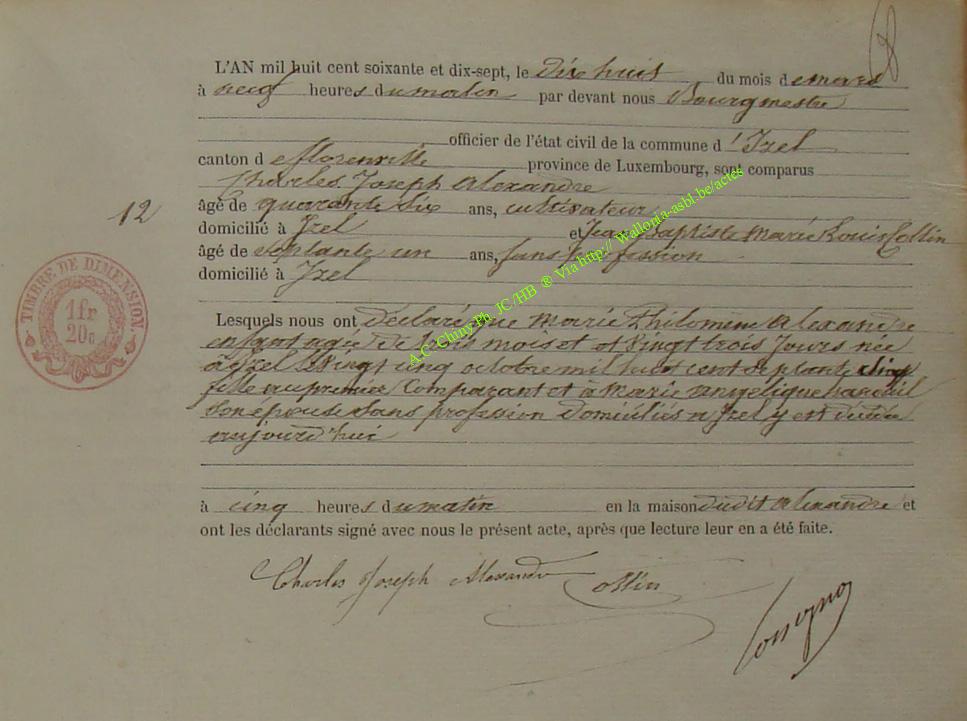 L'AN mil huit cent soixante et dix-sept, le Dix huit du mois de mars
à neuf heures du matin par devant nous Bourgmestre
officier de l'état civil de la commune d'Izel
canton de florenville province de Luxembourg, sont comparus
Charles Joseph Alexandre
12
âgé de quarante six ans, cultivateur
domicilié à Izel et Jean Baptiste Marie Louis Collin
âgé de septante un ans, sans profession
domicilié à Izel
TIMBRE DE DIMENSION.
1 fr
20c
Lesquels nous ont déclaré que Marie Philomène Alexandre
enfant agée de mois et vingt trois jours née
à Izel le vingt cinq octobre mil huit cent septante cinq
fille au premier Comparant et à Marie angelique
son épouse sans profession Domiciliés a Izel y est
aujourd'hui
à cinq heures du matin en la maison dudit Alexandre et
ont les déclarants signé avec nous le présent acte, après que lecture leur en a été faite.
Charles Joseph Alexandre Collin
A.C. Chiny Ph. JC/HB ® Via http:// Wallonia-asbl-be/actes